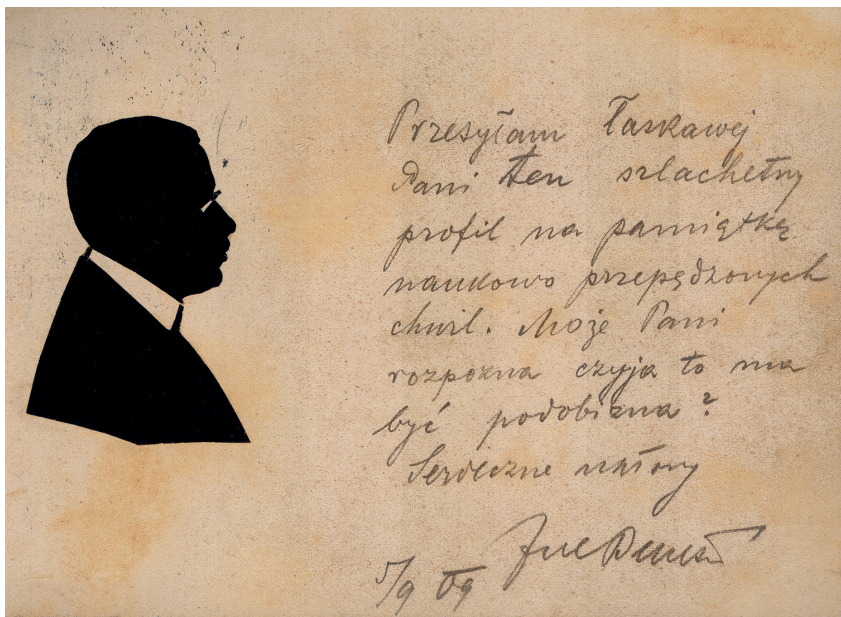 Przesyłam Łaskawej
Pani ten szlachetny
profil na pamiątkę
naukowo przepędzonych
chwil. Może Pani
rozpozna czyja to ma
być podobizna?
Serdeczne ukłony
5/9 09